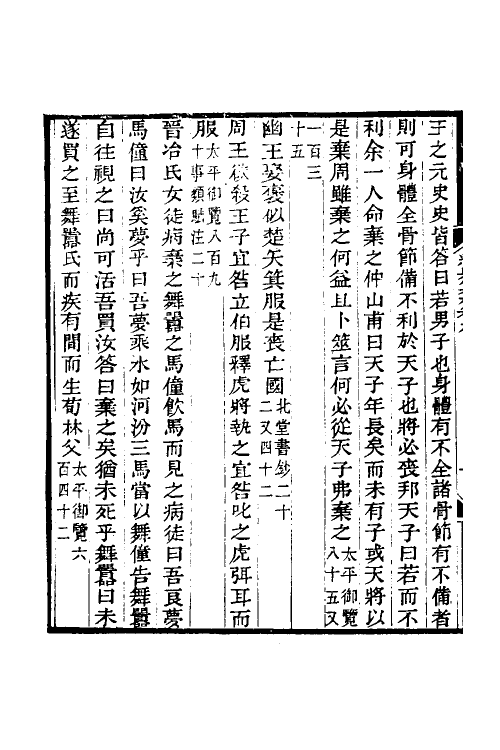 王之元史史皆答曰若男子也身體有不全諸骨節有不備者
則可身體全骨節備不利於天子也將必喪邦天子曰若而不
利余一人命棄之仲山甫曰天子年長矣而未有子或天將以
是棄周雖棄之何益且卜筮言何必從天子弗棄之太平御覽八十五又
一百三十五
幽王嬖褒姒楚矢箕服是喪亡國北堂書鈔二十二又四十二
周王欲殺王子宜咎立伯服釋虎將執之宜咎叱之虎弭耳而
服太平御覽八百九十事類賦注二十
晉冶氏女徒病棄之舞嚚之馬僮飲馬而見之病徒曰吾良夢
馬僮曰汝奚夢乎曰吾夢乘水如河汾三馬當以舞僮告舞嚚
自往視之曰尚可活吾買汝答曰棄之矣猶未死乎舞嚚曰未
遂買之至舞嚚氏而疾有間而生荀林父太平御覽六百四十二